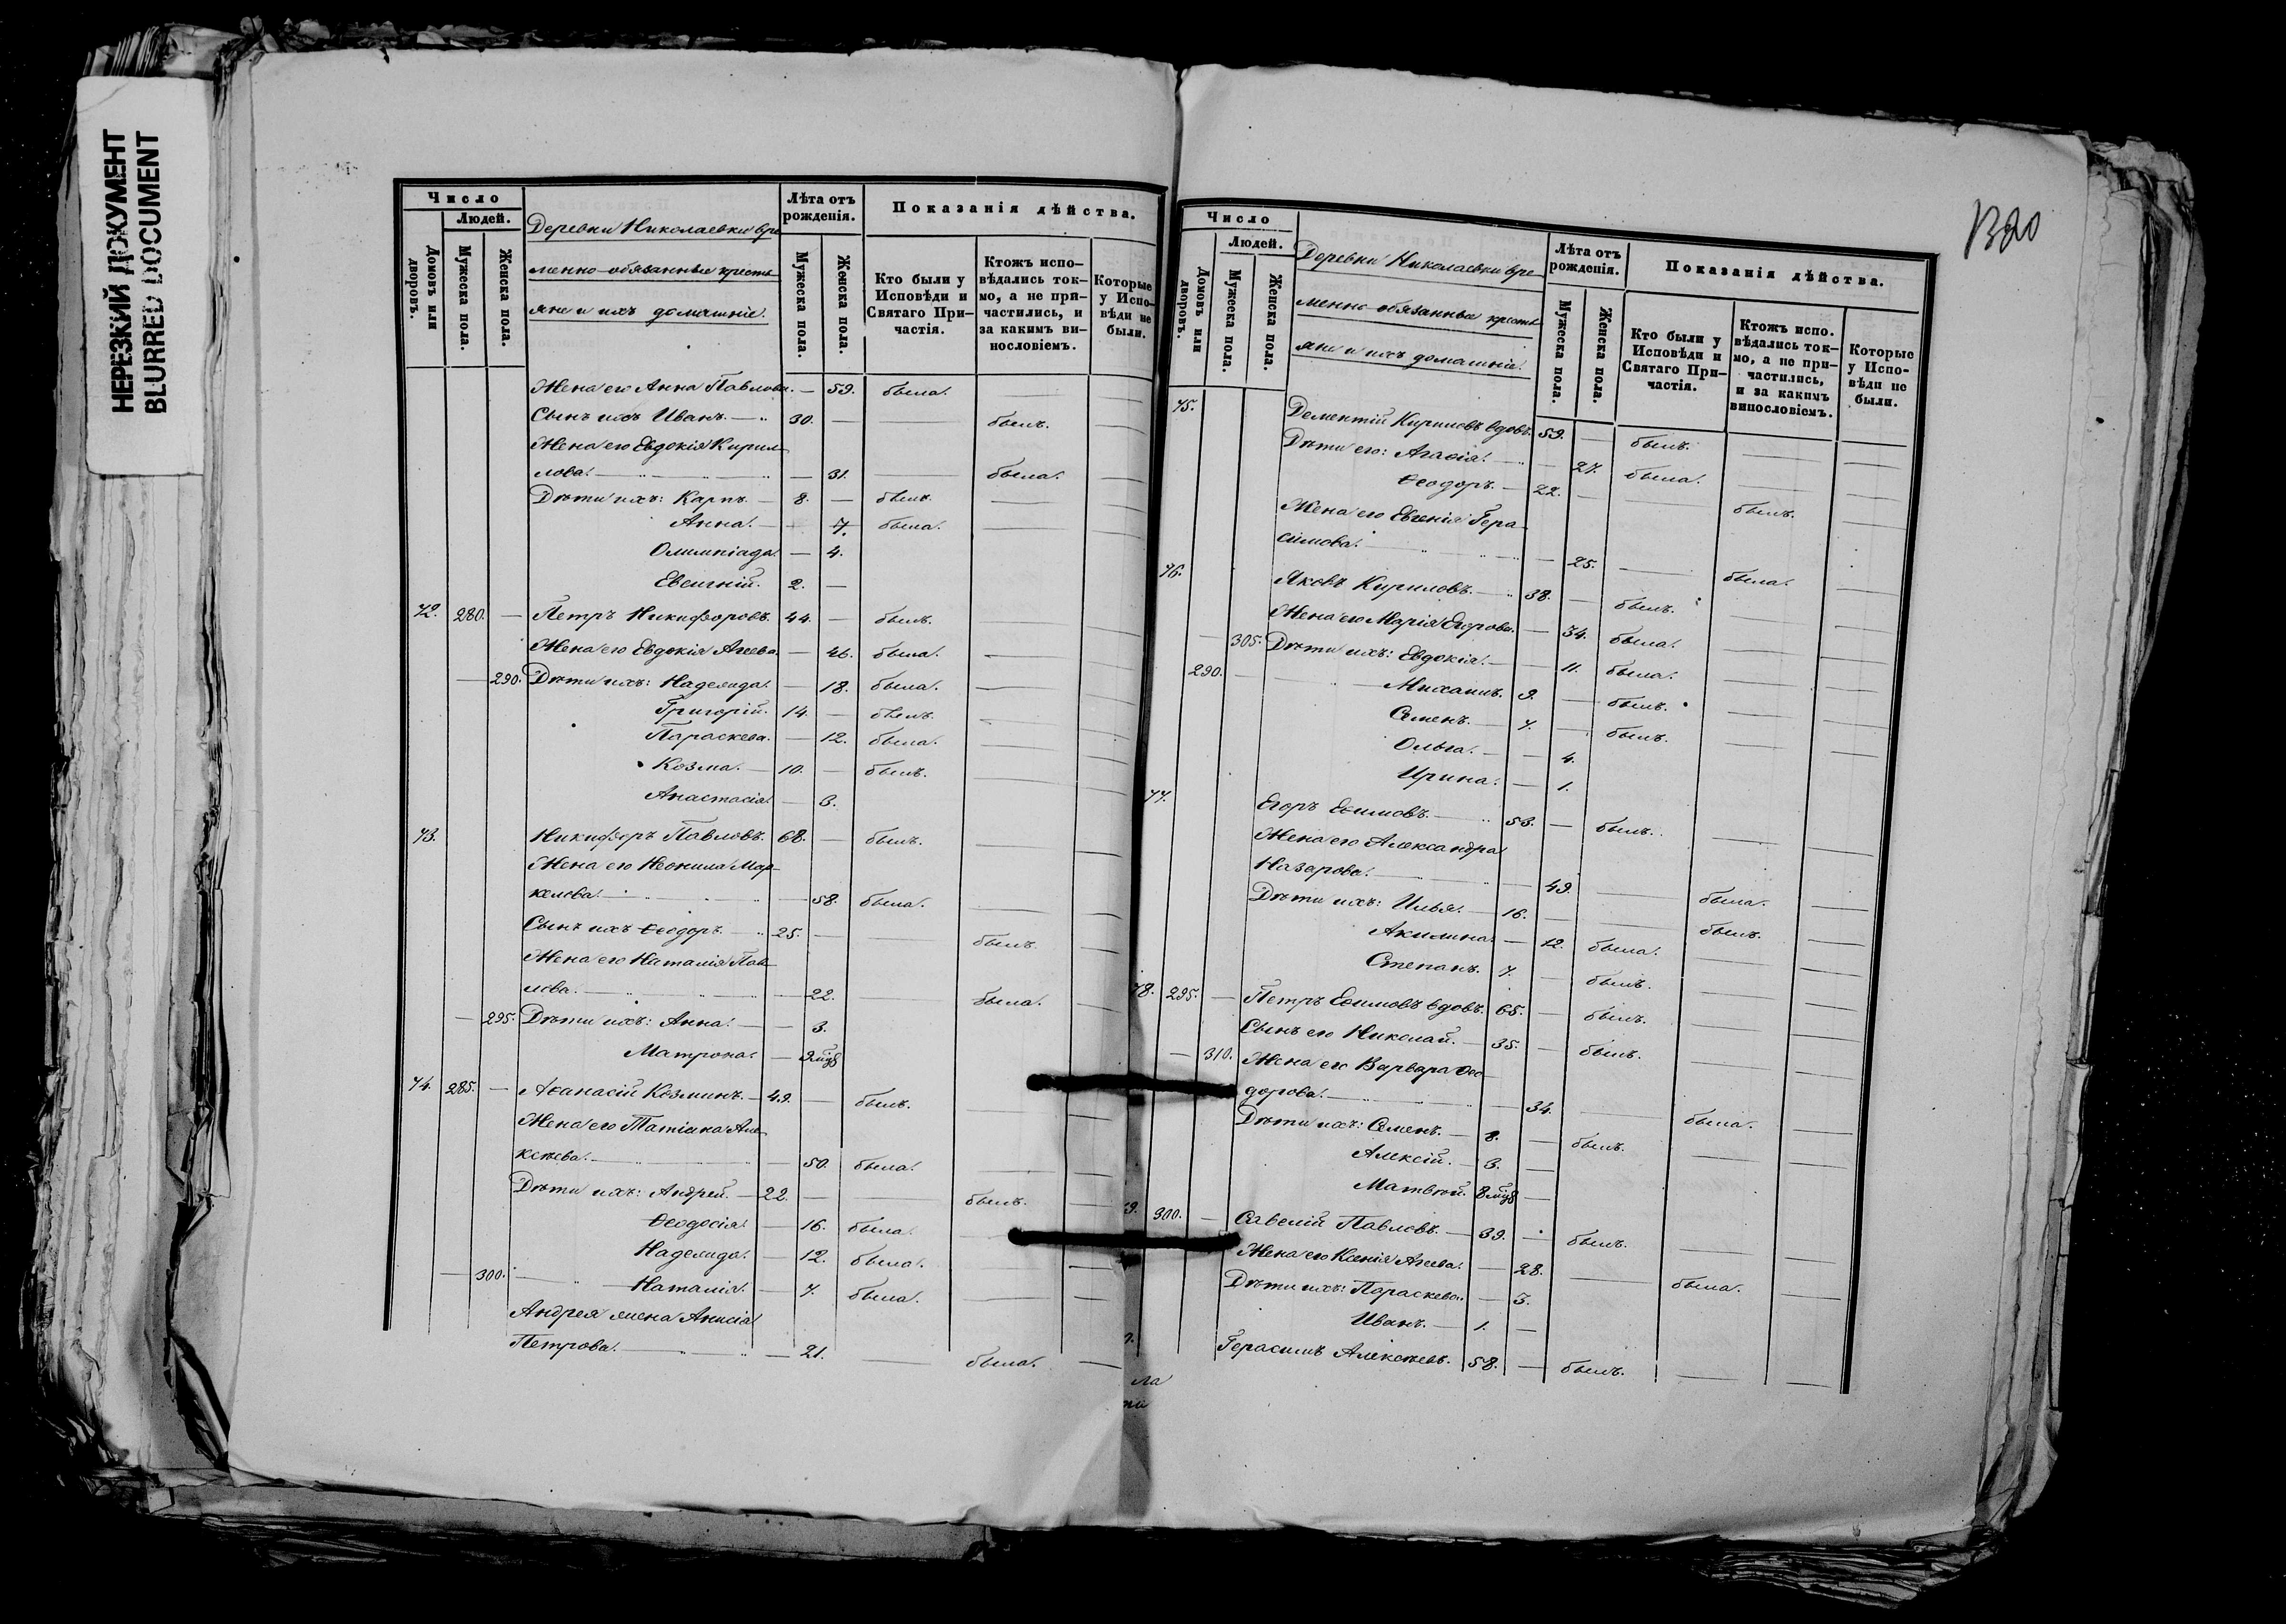 НЕРЕЗКИЙ ДОКУМЕНТ
BLURRED DOCUMENT
Число
Людей.
Домовъ или дворовъ.
Мужеска пола.
Женска пола.
Деревни Николаевки вре
менно-обязанные кресть
яне и ихъ домашніе.
Лѣта отъ рожденія.
Мужеска пола.
Женска пола.
Показанія дѣйства.
Кто были у Исповѣди и Святаго При-частія.
Ктожъ испо-вѣдались ток-мо, а не при-частились, и за какимъ ви-нословіемъ.
Которые у Испо-вѣди не были.
Жена его Анна Павлова. — 59. была.
Сынъ ихъ Иванъ. — 30. — — былъ. —
Жена его Евдокія Кирил
лова. — — 31. — была. —
Дѣти ихъ: Карпъ. — 8. — былъ. — —
Анна. — — 7. была. — —
Олимпіада. — 4.
Евсигній. 2. —
72. 280. — Петръ Никифоровъ. 44. — былъ. — —
Жена его Евдокія Агеева. — 46. была. — —
— 290. Дѣти ихъ: Надежда. — 18. была. — —
Григорій. 14. — былъ. — —
Параскева. — 12. была. — —
Козма. — 10. — былъ. — —
Анастасія. — 3.
73. Никифоръ Павловъ. 68. — былъ. — —
Жена его Неонила Мар
келова. — — 58. была. — —
Сынъ ихъ Ѳеодоръ. — 25. — — былъ. —
Жена его Наталія Пав
лова. — — 22. — была. —
— 295. Дѣти ихъ: Анна. — — 3.
Матрона. — 9 мѣс
74. 285. — Аѳанасій Козминъ. — 49. — былъ. — —
Жена его Татіана Але
ксѣева. — — 50. была. — —
Дѣти ихъ: Андрей. — 22. — — былъ. —
Ѳеодосія. — 16. была. — —
Надежда. — 12. была. — —
— 300. — Наталія. — 7. была. — —
Андрея жена Анисія
Петрова. — — 21. — была. —
1320
Число
Людей.
Домовъ или дворовъ.
Мужеска пола.
Женска пола.
Деревни Николаевки вре
менно-обязанные кресть
яне и ихъ домашніе.
Лѣта отъ рожденія.
Мужеска пола.
Женска пола.
Показанія дѣйства.
Кто были у Исповѣди и Святаго При-частія.
Ктожъ испо-вѣдались ток-мо, а не при-частились, и за какимъ винословіемъ.
Которые у Испо-вѣди не были.
75. Дементій Кириловъ вдовъ. 59. — былъ. — —
Дѣти его: Агафія. — — 27. была. — —
Ѳеодоръ. — 22. — — былъ. —
Жена его Евгенія Гера
симова. — — 25. — была. —
76. Яковъ Кириловъ. — 38. — былъ. — —
Жена его Марія Егорова. — 34. была. — —
— 305. Дѣти ихъ: Евдокія. — — 11. была. — —
290. — Михаилъ. 9. — былъ. — —
Семенъ. — 7. — былъ. — —
Ольга. — — 4.
Ирина. — 1.
77. Егоръ Еѳимовъ. — 53. — былъ. — —
Жена его Александра
Назарова. — — 49. — была. —
Дѣти ихъ: Илья. — 16. — — былъ. —
Акилина. — 12. была. — —
Степанъ. 7. — былъ. — —
78. 295. — Петръ Еѳимовъ вдовъ. 65. — былъ. — —
Сынъ его Николай. — 35. — былъ. — —
— 310. Жена его Варвара Ѳео
дорова. — — 34. — была. —
Дѣти ихъ: Семенъ. — 8. — былъ. — —
Алексій. — 3. —
Матвѣй. 8 мѣс —
9. 300. — Савелій Павловъ. — 39. — былъ. — —
Жена его Ксенія Агеева. — 28. — была. —
Дѣти ихъ: Параскева. — 3.
Иванъ. — 1. —
Герасимъ Алексѣевъ. 58. — былъ. — —